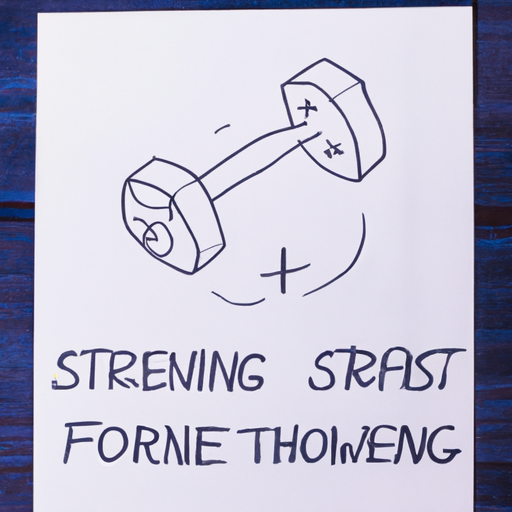 STRENING SRAST
FORNE THOIWENG